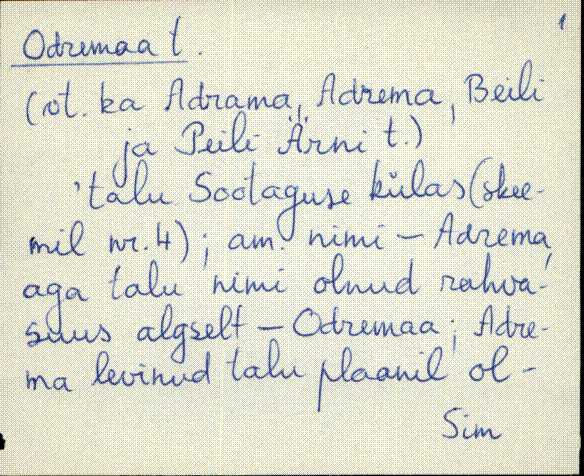 1
Odremaa t.
(vt. ka Adrama, Adrema, Beili
ja Peili Ärni t.)
'talu Sootaguse külas (skee-
mil nr. 4); am. nimi – Adrema,
aga talu nimi olnud rahva-
suus algselt – Odremaa; Adre-
ma levinud talu plaanil ol-
Sim